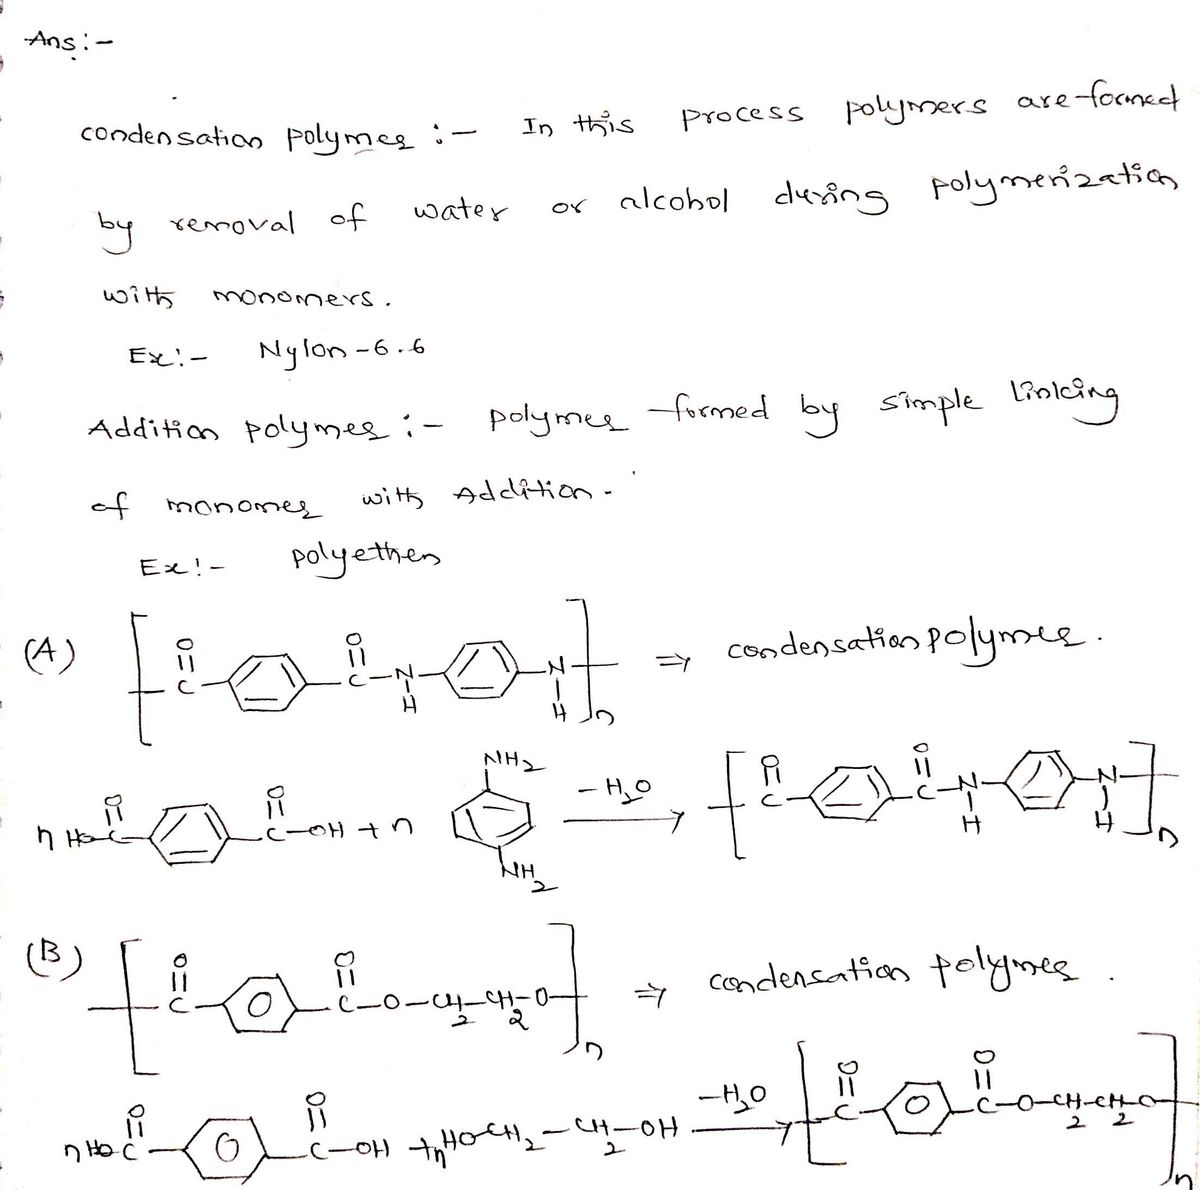 Ans:-
condensation polymer :- In this process polymers are formed
by removal of water or alcohol during polymerization
with monomers.
Ex:- Nylon-6.6
Addition polymer :- polymer formed by simple linking
of monomer with Addition.
Ex:- polyethen
(A) [ O || C O || C-N H N H ]n ⇒ condensation polymer.
n HO-C O || O || C-OH + n NH2 NH2 -H2O → [ O || C O || C-N H N H ]n
(B) [ O || C O || C-O-CH2-CH2-O ]n ⇒ condensation polymer.
n HO C O || O || C-OH + n HO-CH2-CH2-OH -H2O → [ O || C O || C-O-CH2-CH2-O ]n